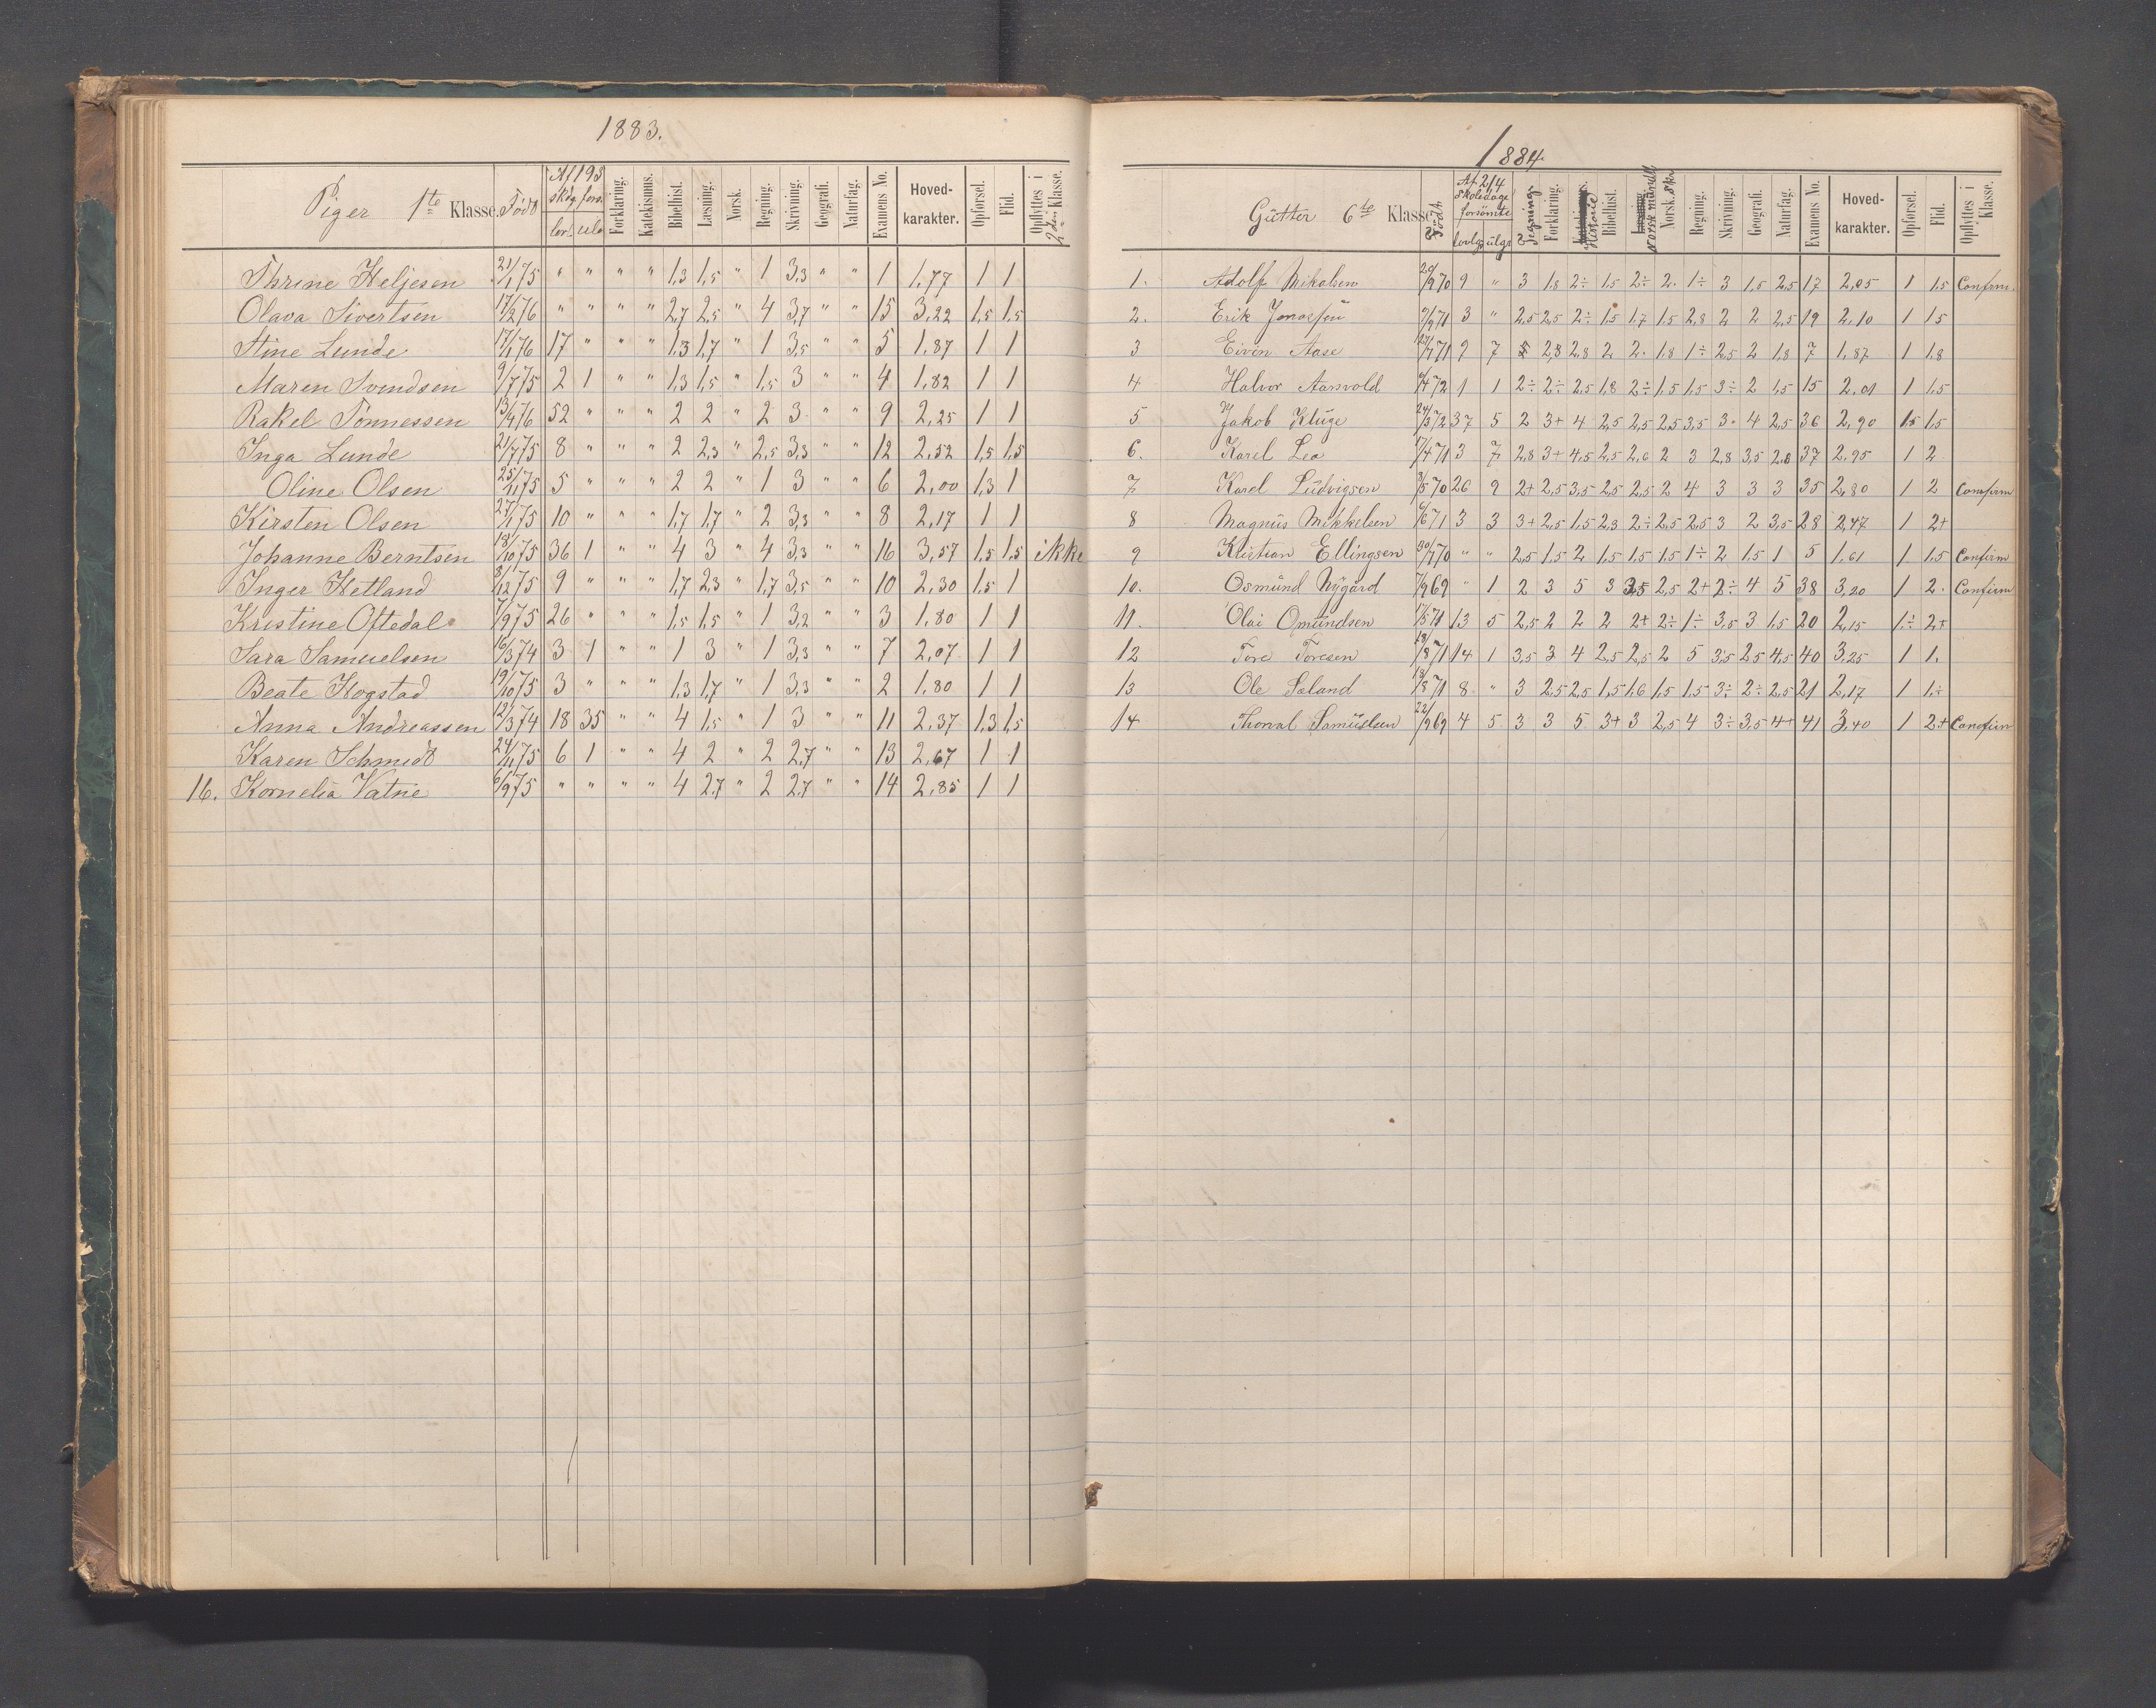 1883.
Piger 1te Klasse. Födt Af 193 skdg. fors. lov. ulo Forklaring. Katekismus. Bibelhist. Læsning. Norsk. Regning. Skrivning. Geografi. Naturfag. Examens No. Hoved-karakter. Opførsel. Flid. Opflyttes i 2den Klasse.
Thrine Heljesen 21/1 75 " " " " 1,3 1,5 " 1 3,3 " " 1 1,77 1 1
Olava Sivertsen 17/2 76 " " " " 2,7 2,5 " 4 3,7 " " 15 3,22 1,5 1,5
Stine Lunde 17/1 76 17 " " " 1,3 1,7 " 1 3,5 " " 5 1,87 1 1
Maren Svendsen 9/7 75 2 1 " " 1,3 1,5 " 1,5 3 " " 4 1,82 1 1
Rakel Tönnessen 13/4 76 52 " " " 2 2 " 2 3 " " 9 2,25 1 1
Inga Lunde 21/7 75 8 " " " 2 2,3 " 2,5 3,3 " " 12 2,52 1,5 1,5
Oline Olsen 25/11 75 5 " " " 2 2 " 1 3 " " 6 2,00 1,3 1
Kirsten Olsen 27/1 75 10 " " " 1,7 1,7 " 2 3,3 " " 8 2,17 1 1
Johanne Berntsen 18/10 75 36 1 " " 4 3 " 4 3,3 " " 16 3,57 1,5 1,5 ikke
Inger Hetland 8/12 75 9 " " " 1,7 2,3 " 1,7 3,5 " " 10 2,30 1,5 1
Kristine Oftedal 7/9 75 26 " " " 1,5 1,5 " 1 3,2 " " 3 1,80 1 1
Sara Samuelsen 16/3 74 3 1 " " 1 3 " 1 3,3 " " 7 2,07 1 1
Beate Hogstad 19/10 75 3 " " " 1,3 1,7 " 1 3,3 " " 2 1,80 1 1
Anna Andreassen 12/3 74 18 35 " " 4 1,5 " 1 3 " " 11 2,37 1,3 1,5
Karen Schmidt 24/11 75 6 1 " " 4 2 " 2 2,7 " " 13 2,67 1 1
16. Kornelia Vatne 6/9 75 " " " " 4 2,7 " 2 2,7 " " 14 2,85 1 1
1884.
Gutter 6te Klasse Födt Af 214 Skoledage forsömte lovlg. ulgt Tegning Forklaring. Historie Bibelhist. Norsk mundtl Norsk. skr Regning. Skrivning. Geografi. Naturfag. Examens No. Hoved-karakter. Opførsel. Flid. Opflyttes i Klasse.
1. Adolf Mikalsen 20/9 70 9 " 3 1,8 2÷ 1,5 2÷ 2. 1÷ 3 1,5 2,5 17 2,05 1 1,5 Confirm.
2. Erik Jonassen 9/9 71 3 " 2,5 2,5 2÷ 1,5 1,7 1,5 2,8 2 2 2,5 19 2,10 1 1,5
3 Eiven Aase 27/7 71 9 7 2,8 2,8 2 2. 1,8 1÷ 2,5 2 1,8 7 1,87 1 1,8
4 Halvor Aanvold 9/4 72 1 1 2÷ 2÷ 2,5 1,8 2÷ 1,5 1,5 3÷ 2 1,5 15 2,01 1 1,5
5 Jakob Kluge 24/3 72 37 5 2 3+ 4 2,5 2,5 2,5 3,5 3. 4 2,5 36 2,90 1,5 1,5
6. Karel Lea 17/4 71 3 7 2,8 3+ 4,5 2,5 2,6 2 3 2,8 3,5 2,8 37 2,95 1 2
7 Karel Ludvigsen 3/5 70 26 9 2+ 2,5 3,5 2,5 2,5 2 4 3 3 3 35 2,80 1 2 Confirm
8 Magnus Mikkelsen 6/6 71 3 3 3+ 2,5 1,5 2,3 2÷ 2,5 2,5 3 2 3,5 28 2,47 1 2+
9 Kristian Ellingsen 30/7 70 " " 2,5 1,5 2 1,5 1,5 1,5 1÷ 2 1,5 1 5 1,61 1. 1,5 Confirm
10. Osmund Nygård 7/9 69 " 1 2 3 5 3 3,5 2,5 2+ 2÷ 4 5 38 3,20 1 2. Confirm
11. Olai Omundsen 17/5 71 13 5 2,5 2 2 2 2+ 2÷ 1÷ 3,5 3 1,5 20 2,15 1÷ 2+
12 Tore Toresen 18/8 71 14 1 3,5 3 4 2,5 2,5 2 5 3,5 2,5 4,5 40 3,25 1 1.
13 Ole Søland 18/8 71 8 " 3 2,5 2,5 1,5 1,6 1,5 1,5 3÷ 2÷ 2,5 21 2,17 1 1÷
14 Thorval Samuelsen 22/9 69 4 5 3 3 5 3+ 3 2,5 4 3÷ 3,5 4+ 41 3,40 1 2+ Confirm